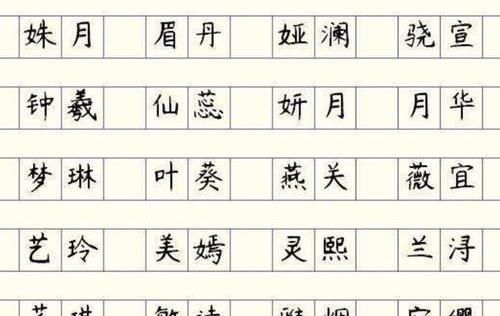 姝月 眉丹 娅澜 骁宣
钟羲 仙蕊 妍月 月华
梦琳 叶葵 燕关 薇宜
艺玲 美嫣 灵熙 兰浔